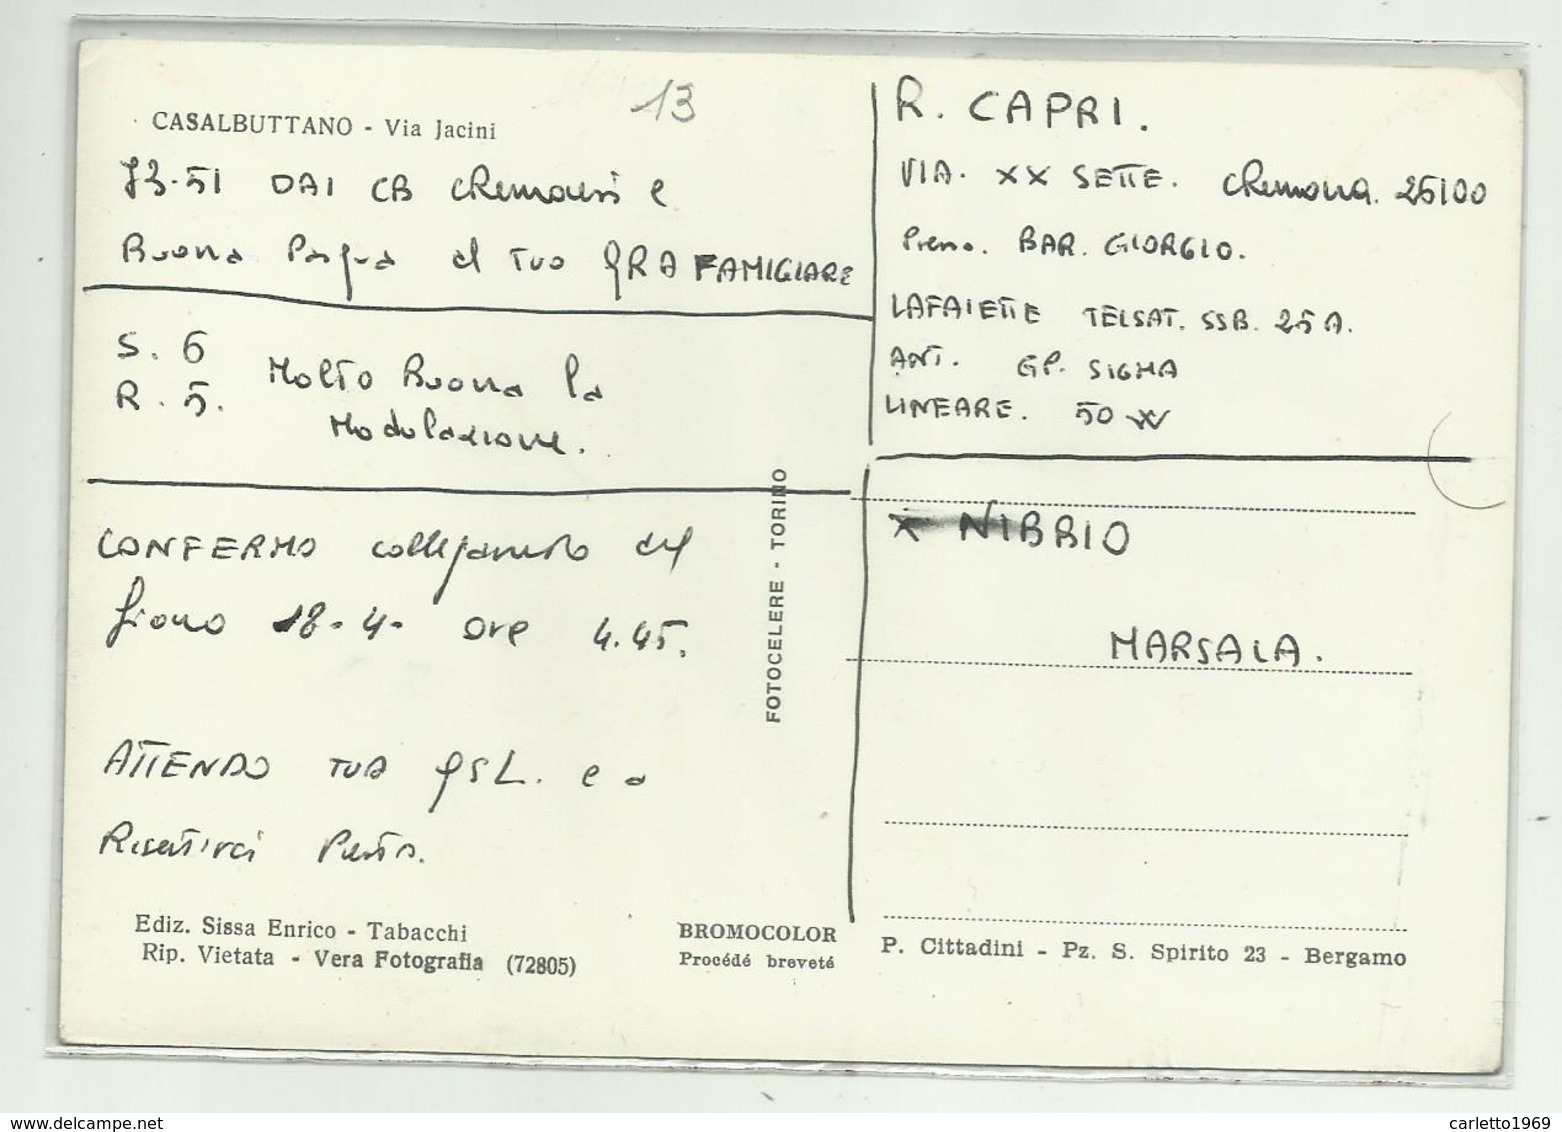 13
CASALBUTTANO - Via Jacini
73-51 DAI CB Cremonesi e
Buona Pasqua al TUO QRA FAMIGLIARE
S. 6
R. 5.
Molto Buona la
Modulazione.
CONFERMO collegamento del
giorno 18-4- ore 4.45.
ATTENDO TUA QSL. e a
Risentirci Presto.
Ediz. Sissa Enrico - Tabacchi
Rip. Vietata - Vera Fotografia (72805)
BROMOCOLOR
Procédé breveté
FOTOCELERE - TORINO
R. CAPRI.
VIA. XX SETTE. Cremona. 26100
Presso. BAR. GIORGIO.
LAFAIETTE TELSAT. SSB. 25 A.
ANT. GP. SIGMA
LINEARE. 50 W
X NIBBIO
MARSALA.
P. Cittadini - Pz. S. Spirito 23 - Bergamo
carletto1969